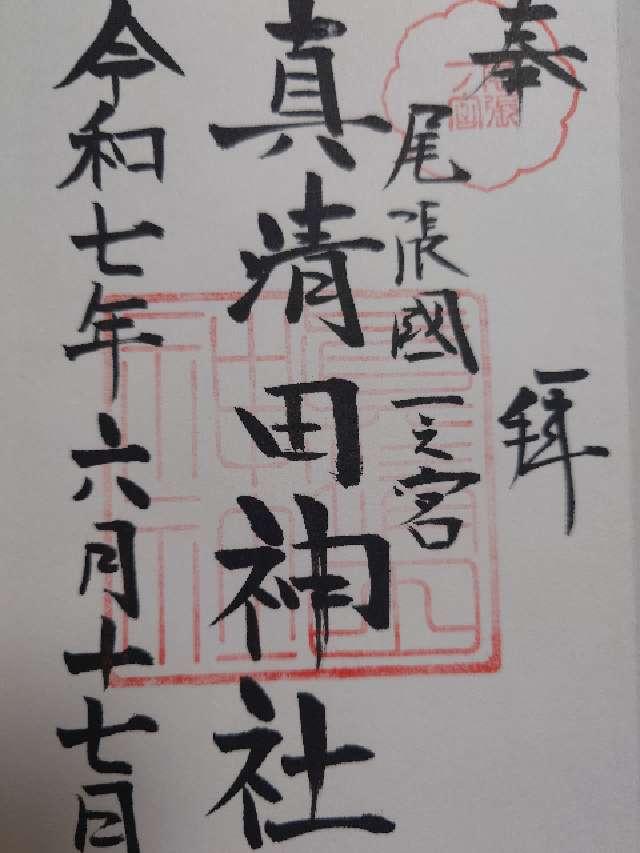 奉拝
尾張國一之宮
真清田神社
令和七年六月十七日